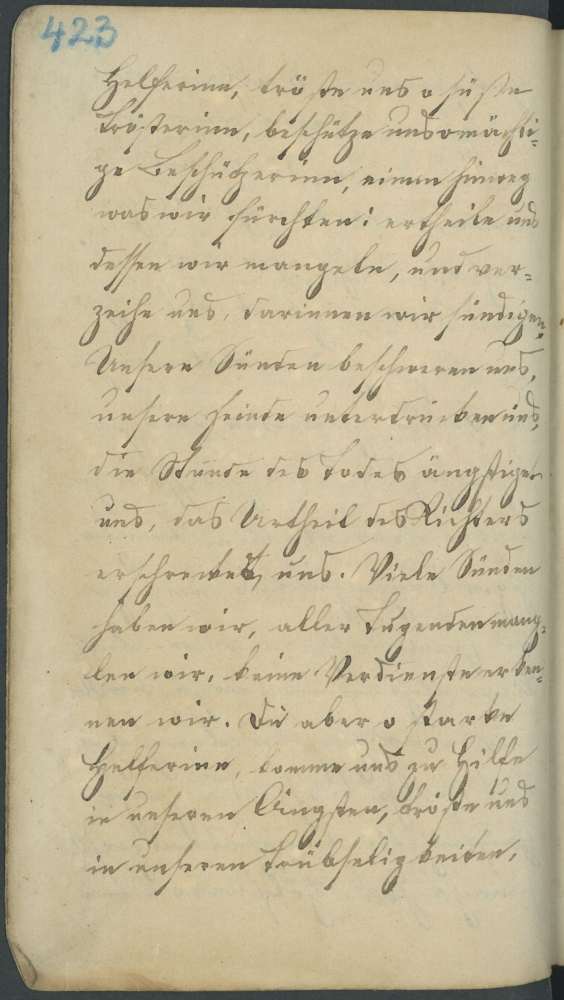 423
Helferinn, tröste uns o süße
Trösterinn, beschütze uns o mächti-
ge Beschützerinn, nimm hinweg
was wir fürchten: ertheile uns
dessen wir mangeln, und ver-
zeihe uns, darinnen wir sündigen.
Unsere Sünden beschweren uns,
unsere Feinde unterdrücken uns,
die Stunde des Todes ängstiget
uns, das Urtheil des Richters
erschrecket, uns. Viele Sünden
haben wir, aller Tugenden mang-
len wir, keine Verdienste erken-
nen wir. Du aber o starke
Helferinn, komme uns zu Hilfe
in unseren Ängsten, tröste uns
in unseren Trübseligkeiten,